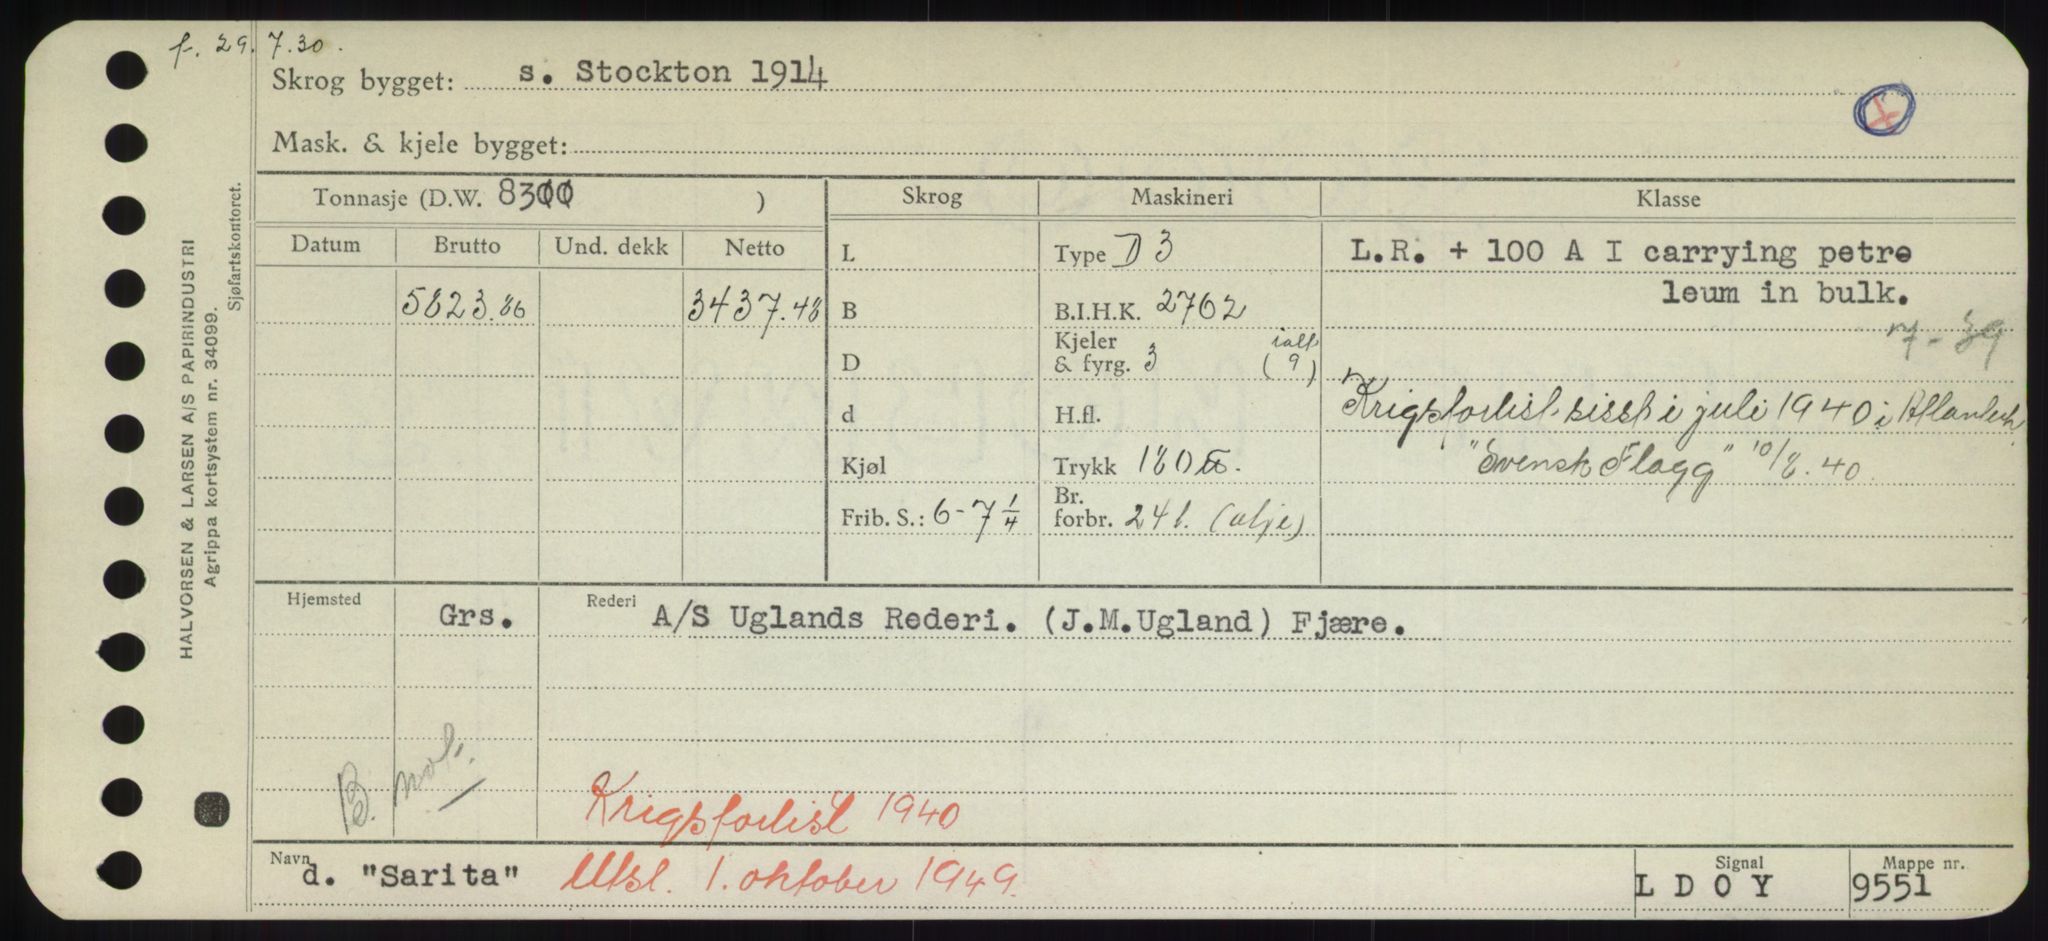 f. 29. 7.30.
Skrog bygget: s. Stockton 1914
Mask. & kjele bygget:
Tonnasje (D.W. 8300 ) Skrog Maskineri Klasse
Datum Brutto Und. dekk Netto L Type D 3 L.R. + 100 A I carrying petro
leum in bulk.
5823.86 3437.48 B B.I.H.K. 2762
7-39
D Kjeler & fyrg. 3 ialt (9)
d H.fl. Krigsforlist sist i juli 1940 i Atlanteh.
Kjøl Trykk 180 "Svensk Flagg" 10/8.40
Frib. S.: 6-7 1/4 Br. forbr. 24 t. (olje)
Hjemsted Grs. Rederi A/S Uglands Rederi. (J.M.Ugland) Fjære.
B. not.
Krigsforlist 1940
Navn d. "Sarita" Utsl. 1. oktober 1949. Signal L D O Y Mappe nr. 9551
HALVORSEN & LARSEN A/S PAPIRINDUSTRI
Agrippa kortsystem nr. 34099.
Sjøfartskontoret.